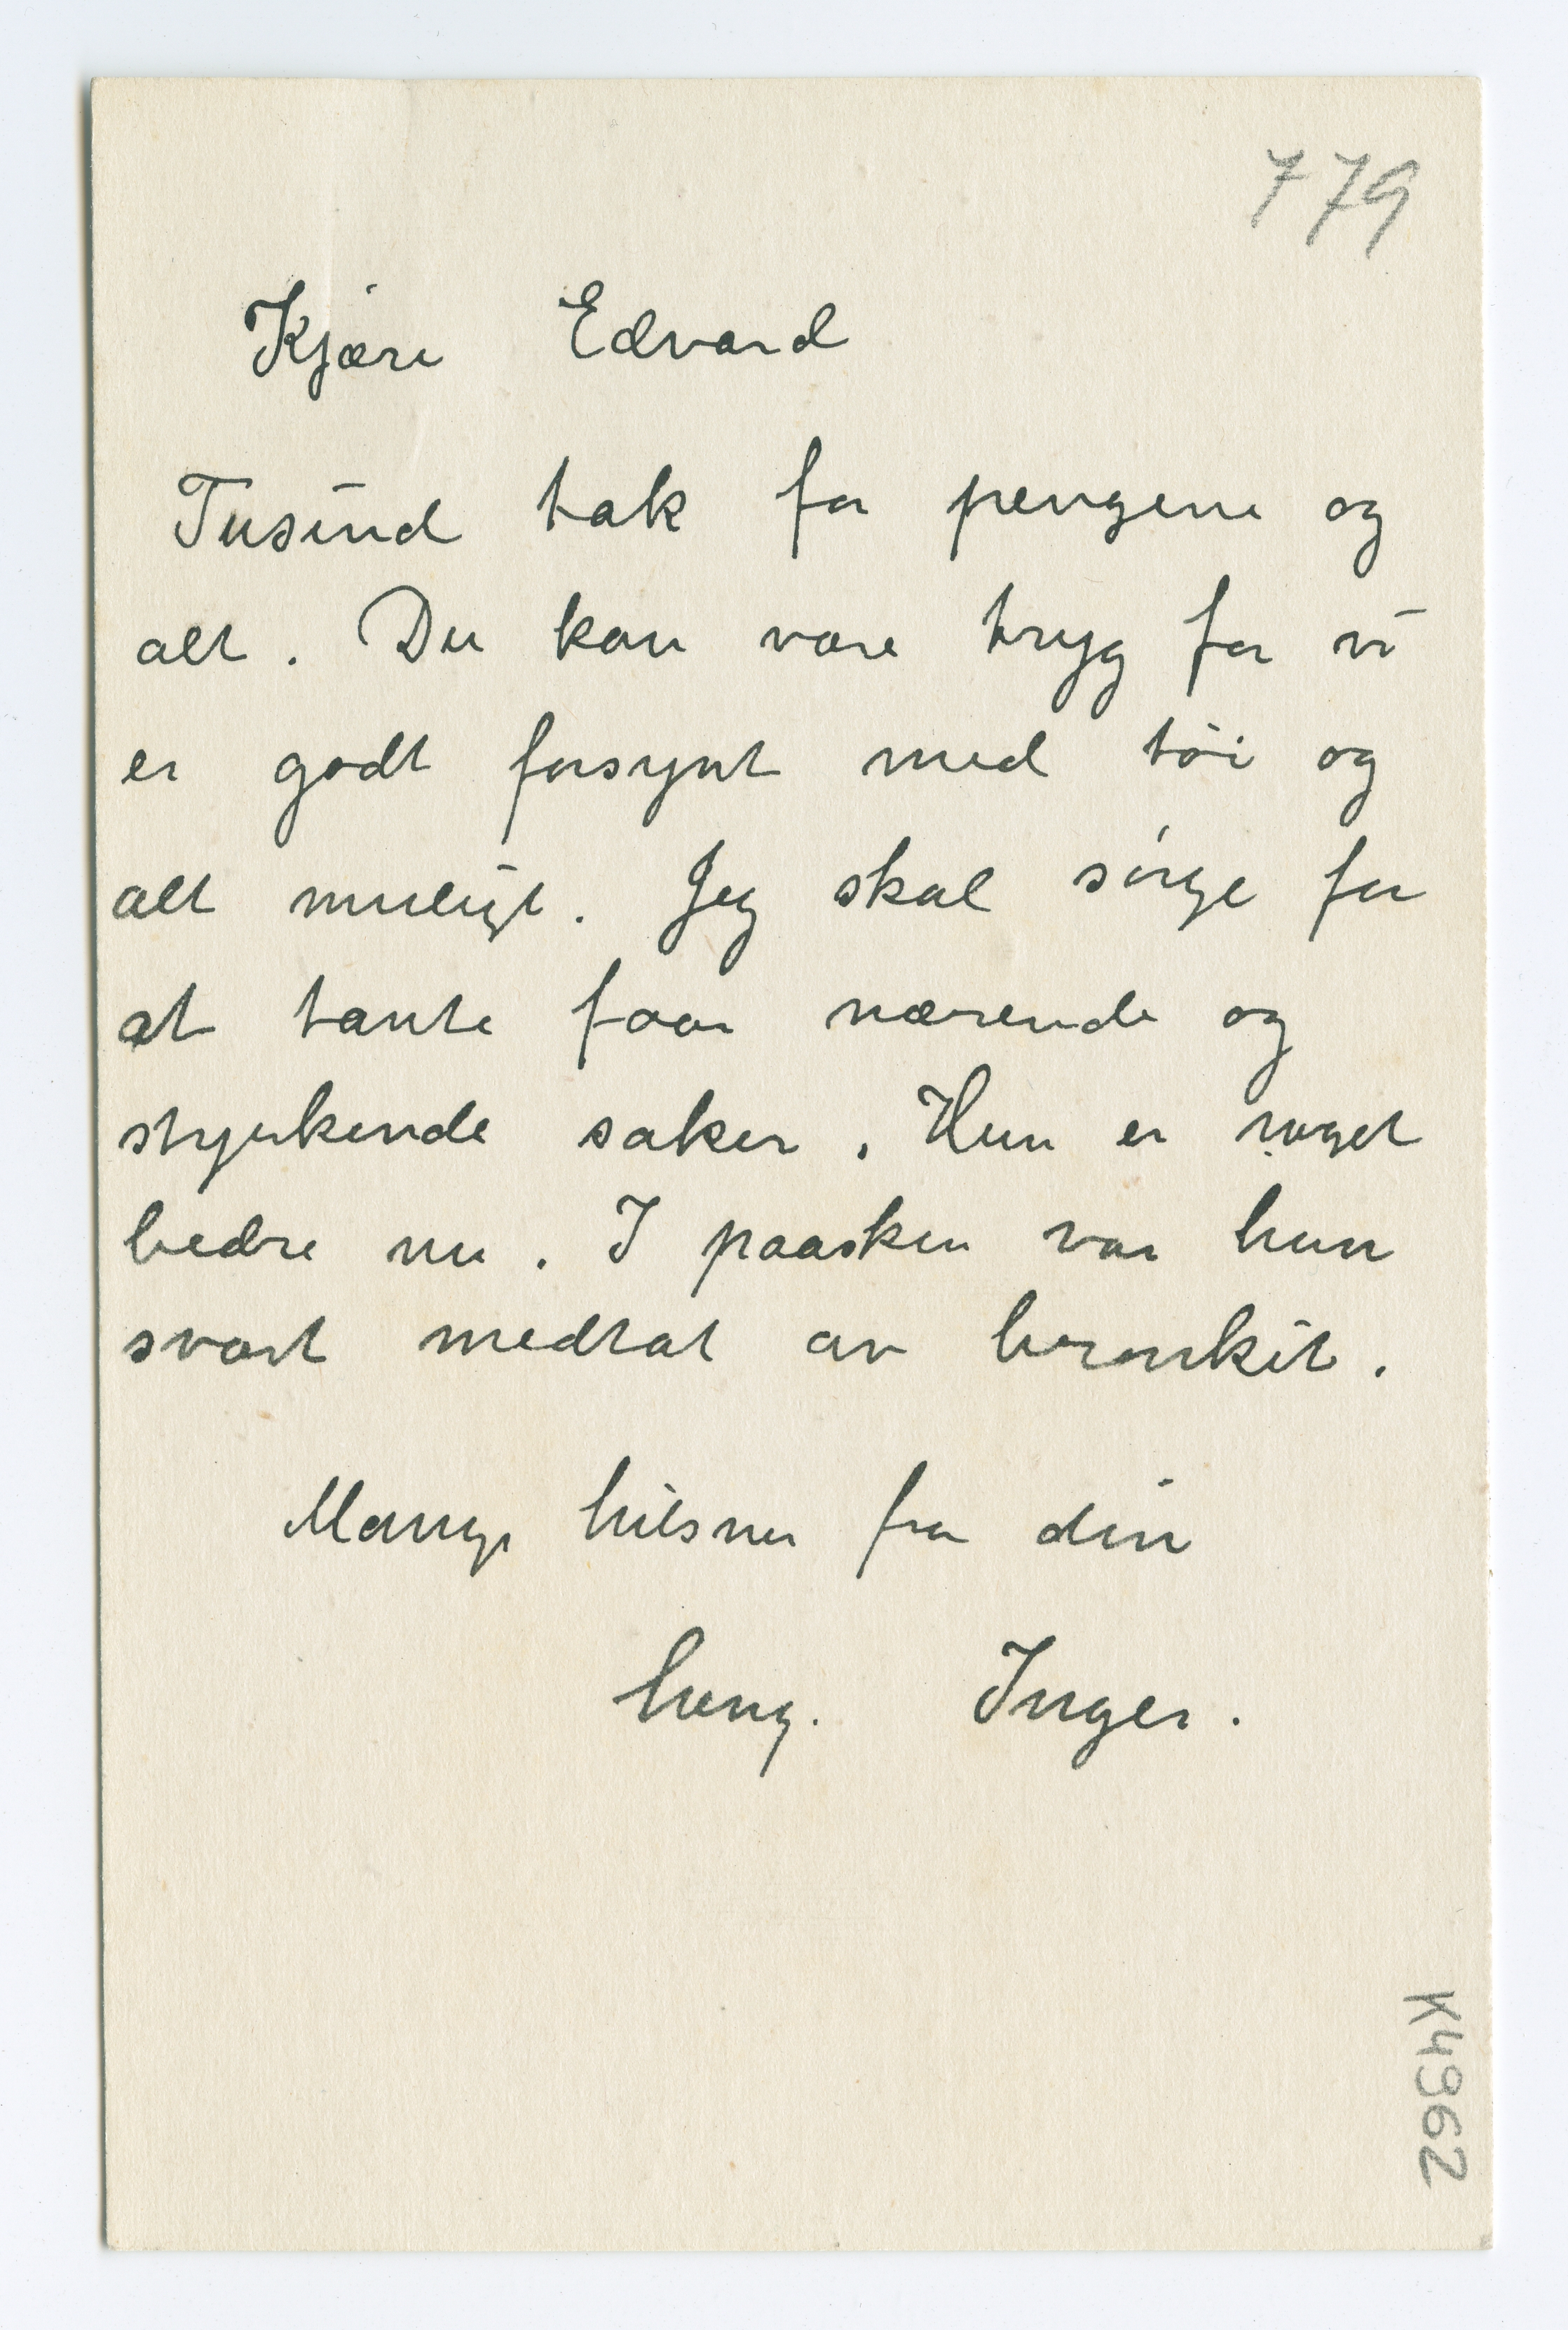 779
Kjære Edvard
Tusind tak for pengene og
alt. Du kan være tryg for vi
er godt forsynt med tøi og
alt muligt. Jeg skal sørge for
at tante faar nærende og
styrkende saker. Hun er noget
bedre nu. I paasken var hun
svært medtat av bronkit.
Mange hilsner fra din
heng. Inger.
K4962